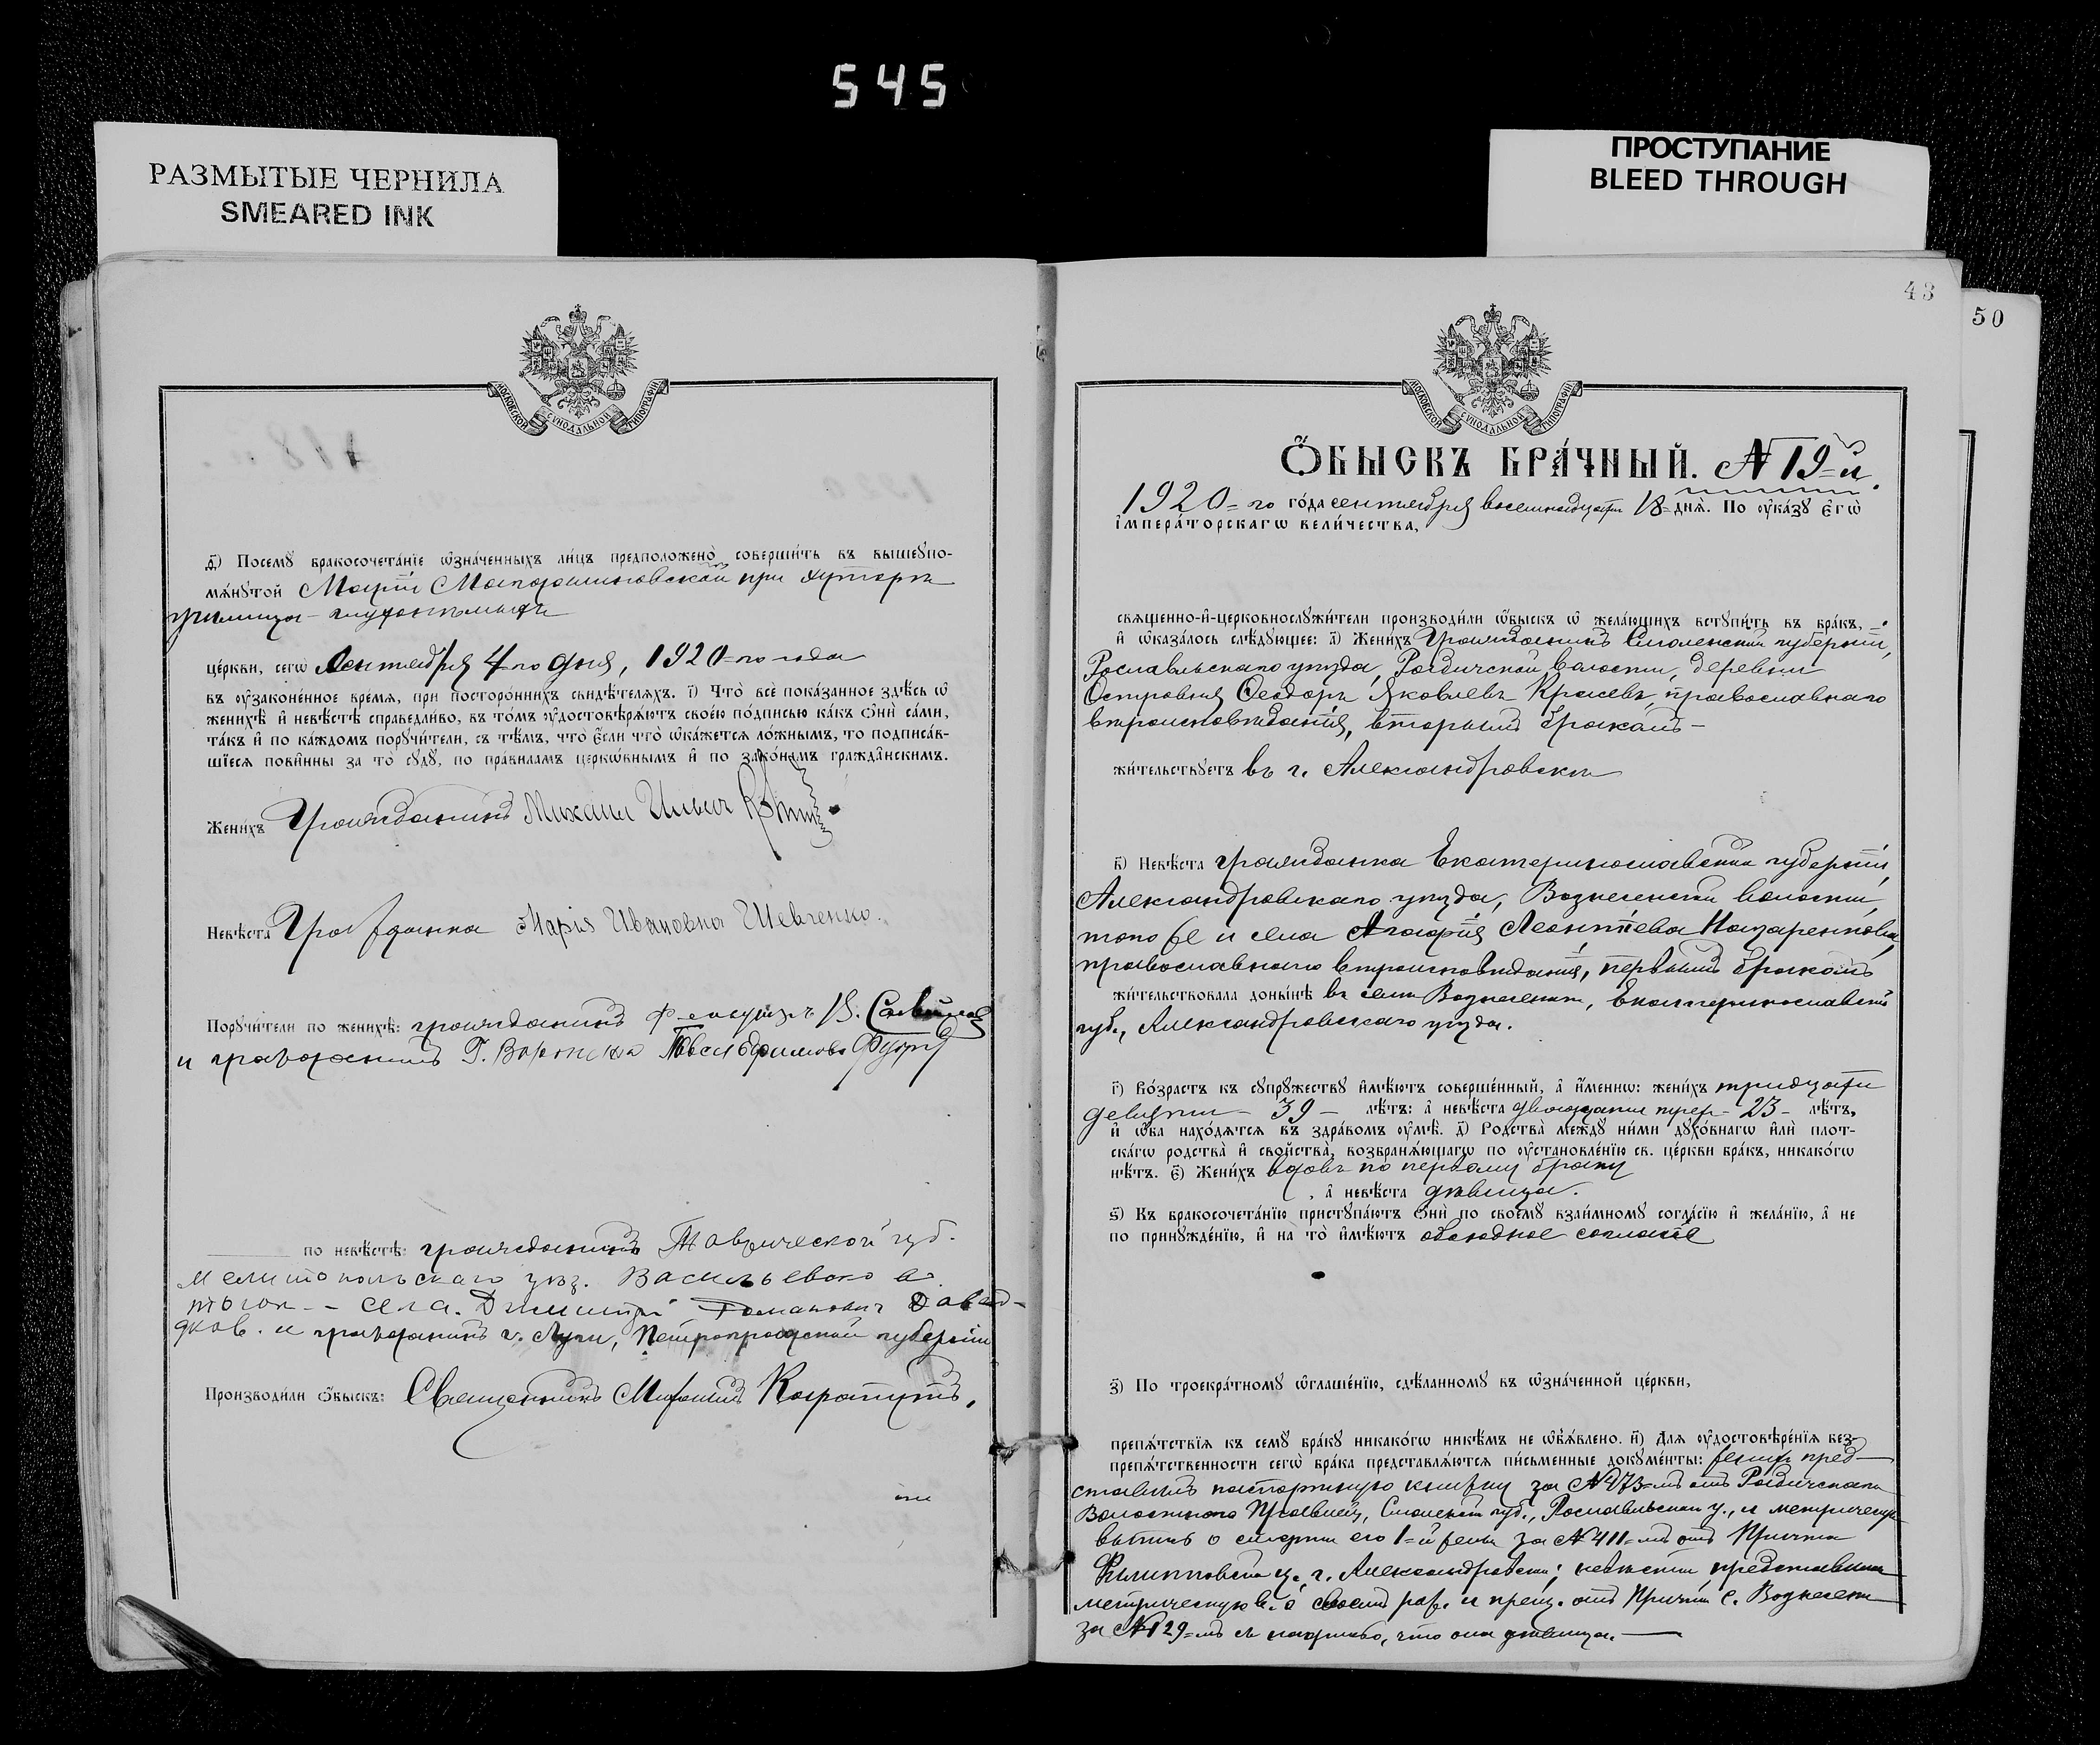 545
РАЗМЫТЫЕ ЧЕРНИЛА
SMEARED INK
ПРОСТУПАНИЕ
BLEED THROUGH
МОСКОВСКОЙ СУНОДАЛЬНОЙ ТИПОГРАФІИ
д҃) Посемꙋ бракосочета́нїе ѡ҆зна́ченныхъ ли́цъ предположено̀ соверши́ть въ вышеꙋпо-
мѧ́нꙋтой при хуторѣ
церкви, сегѡ̀ Сентября 4-го дня, 1920-го года
въ ᲂу҆зако́ненное время, при посторо́ннихъ свидѣ́телѧхъ. і҃) Что̀ всѐ пока́занное здѣ́сь ѡ҆
женихѣ̀ и҆ невѣ́стѣ справедли́во, въ то́мъ ᲂу҆достовѣрѧ́ютъ своє́ю по́дписью ка́къ ѻ҆нѝ са́ми,
та́къ и҆ по ка́ждомъ порꙋчи́тели, съ тѣ́мъ, что̀ є҆́сли что̀ ѡ҆ка́жетсѧ ло́жнымъ, то подписа́в-
шїесѧ пови́нны за то̀ сꙋдꙋ̀, по пра́виламъ церко́внымъ и҆ по зако́намъ гражда́нскимъ.
Жени́хъ Гражданинъ Михаил Ильич
Невѣ́ста Гражданка Марія Ивановна Шевченко.
Порꙋчи́тели по женихѣ̀: гражданинъ
и гражданинъ Г. Воронежа
по невѣ́стѣ: гражданинъ Таврической губ.
Мелитопольскаго уѣз. Васильевско
села. Дмитрій Романович Давид-
ков. и гражданинъ г. Луги, Петроградской губерніи
Производи́ли ѻ҆́быскъ: Священникъ
43
50
МОСКОВСКОЙ СУНОДАЛЬНОЙ ТИПОГРАФІИ
Ѻ҆́БЫСКЪ БРА́ЧНЫЙ. № 19-й.
1920-го го́да сентября восемнадцати 18 днѧ̀. По ᲂу҆ка́зꙋ Є҆гѡ̀
і҆мпера́торскагѡ вели́чества,
свѧщенно-и҆-церковнослꙋжи́тели производи́ли ѻ҆́быскъ ѡ҆ жела́ющихъ встꙋпи́ть въ бра́къ,
и҆ ѡ҆каза́лось слѣ́дꙋющее: а҃) Жени́хъ Гражданинъ Смоленской губерніи,
Рославльскаго уѣзда, волости, деревни
Островня Ѳеодоръ Яковлевъ православнаго
вѣроисповѣданія, вторымъ бракомъ-
жи́тельствꙋетъ въ г. Александровскѣ
в҃) Невѣ́ста гражданка Екатеринославской губерніи,
Александровскаго уѣзда, Вознесенской волости,
того же и села Агафія Леонтіева Назаренкова,
православнаго вѣроисповѣданія, первымъ бракомъ
жи́тельствовала доны́нѣ въ селѣ Вознесенкѣ, Екатеринославской
губ., Александровскаго уѣзда.
г҃) Во́зрастъ къ сꙋпрꙋ́жествꙋ и҆мѣ́ютъ соверше́нный, а҆ и҆́меннѡ: жени́хъ тридцати
девяти - 39 - лѣ́тъ: а҆ невѣ́ста двадцати трех - 23 - лѣ́тъ,
и҆ ѻ҆́ба нахо́дѧтсѧ въ здра́вомъ ᲂу҆мѣ̀. д҃) Родства̀ междꙋ̀ ни́ми дꙋхо́внагѡ и҆лѝ плот-
ска́гѡ родства̀ и҆ свойства̀, возбранѧ́ющагѡ по ᲂу҆становле́нїю св. це́ркви бра́къ, никако́гѡ
нѣ́тъ. є҃) Жени́хъ вдовъ по первому браку
, а҆ невѣ́ста дѣвица.
ѕ҃) Къ бракосочета́нїю пристꙋпа́ютъ ѻ҆нѝ по своємꙋ̀ взаи́мномꙋ согла́сїю и҆ жела́нїю, а҆ не
по принꙋжде́нїю, и҆ на то̀ и҆мѣ́ютъ обоюдное согласіе
з҃) По троекра́тномꙋ ѡ҆глаше́нїю, сдѣ́ланномꙋ въ ѡ҆зна́ченной це́ркви,
препѧ́тствїѧ къ семꙋ̀ бра́кꙋ никако́гѡ никѣ́мъ не ѡ҆б̾ѧ́влено. и҃) Длѧ ᲂу҆достовѣре́нїѧ без-
препѧ́тственности сегѡ̀ бра́ка представлѧ́ютсѧ пи́сьменные докꙋме́нты: женихъ пред-
ставилъ паспортную книжку за № 473-мъ отъ
Волостного Правленія, Смоленской губ., Рославльскаго у., и метрическую
выпись о смерти его 1-й жены за № 411-мъ отъ Причта
Филипповской ц. г. Александровска; невѣста представила
метрическую в. о своемъ рож. и крещ. отъ Причта с. Вознесенки
за № 129-мъ что она дѣвица.